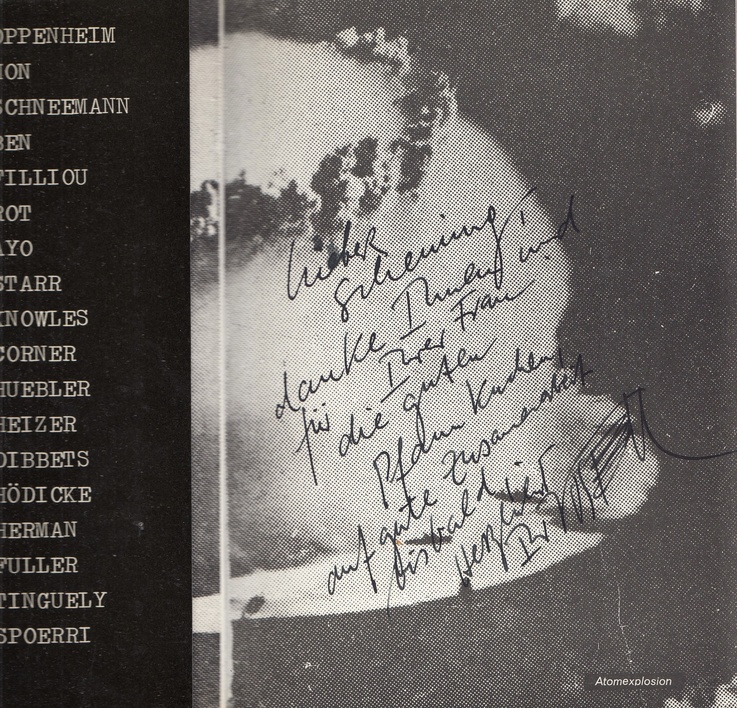 OPPENHEIM
SCHNEEMANN
BEN
FILLIOU
ROT
AYO
STARR
KNOWLES
CORNER
HUEBLER
HEIZER
DIBBETS
HÖDICKE
HERMAN
FULLER
TINGUELY
SPOERRI
Lieber
danke Ihnen und
Ihrer Frau
für die guten
Pfannkuchen,
auf gute Zusammenarbeit
bis bald
Ihr
Atomexplosion